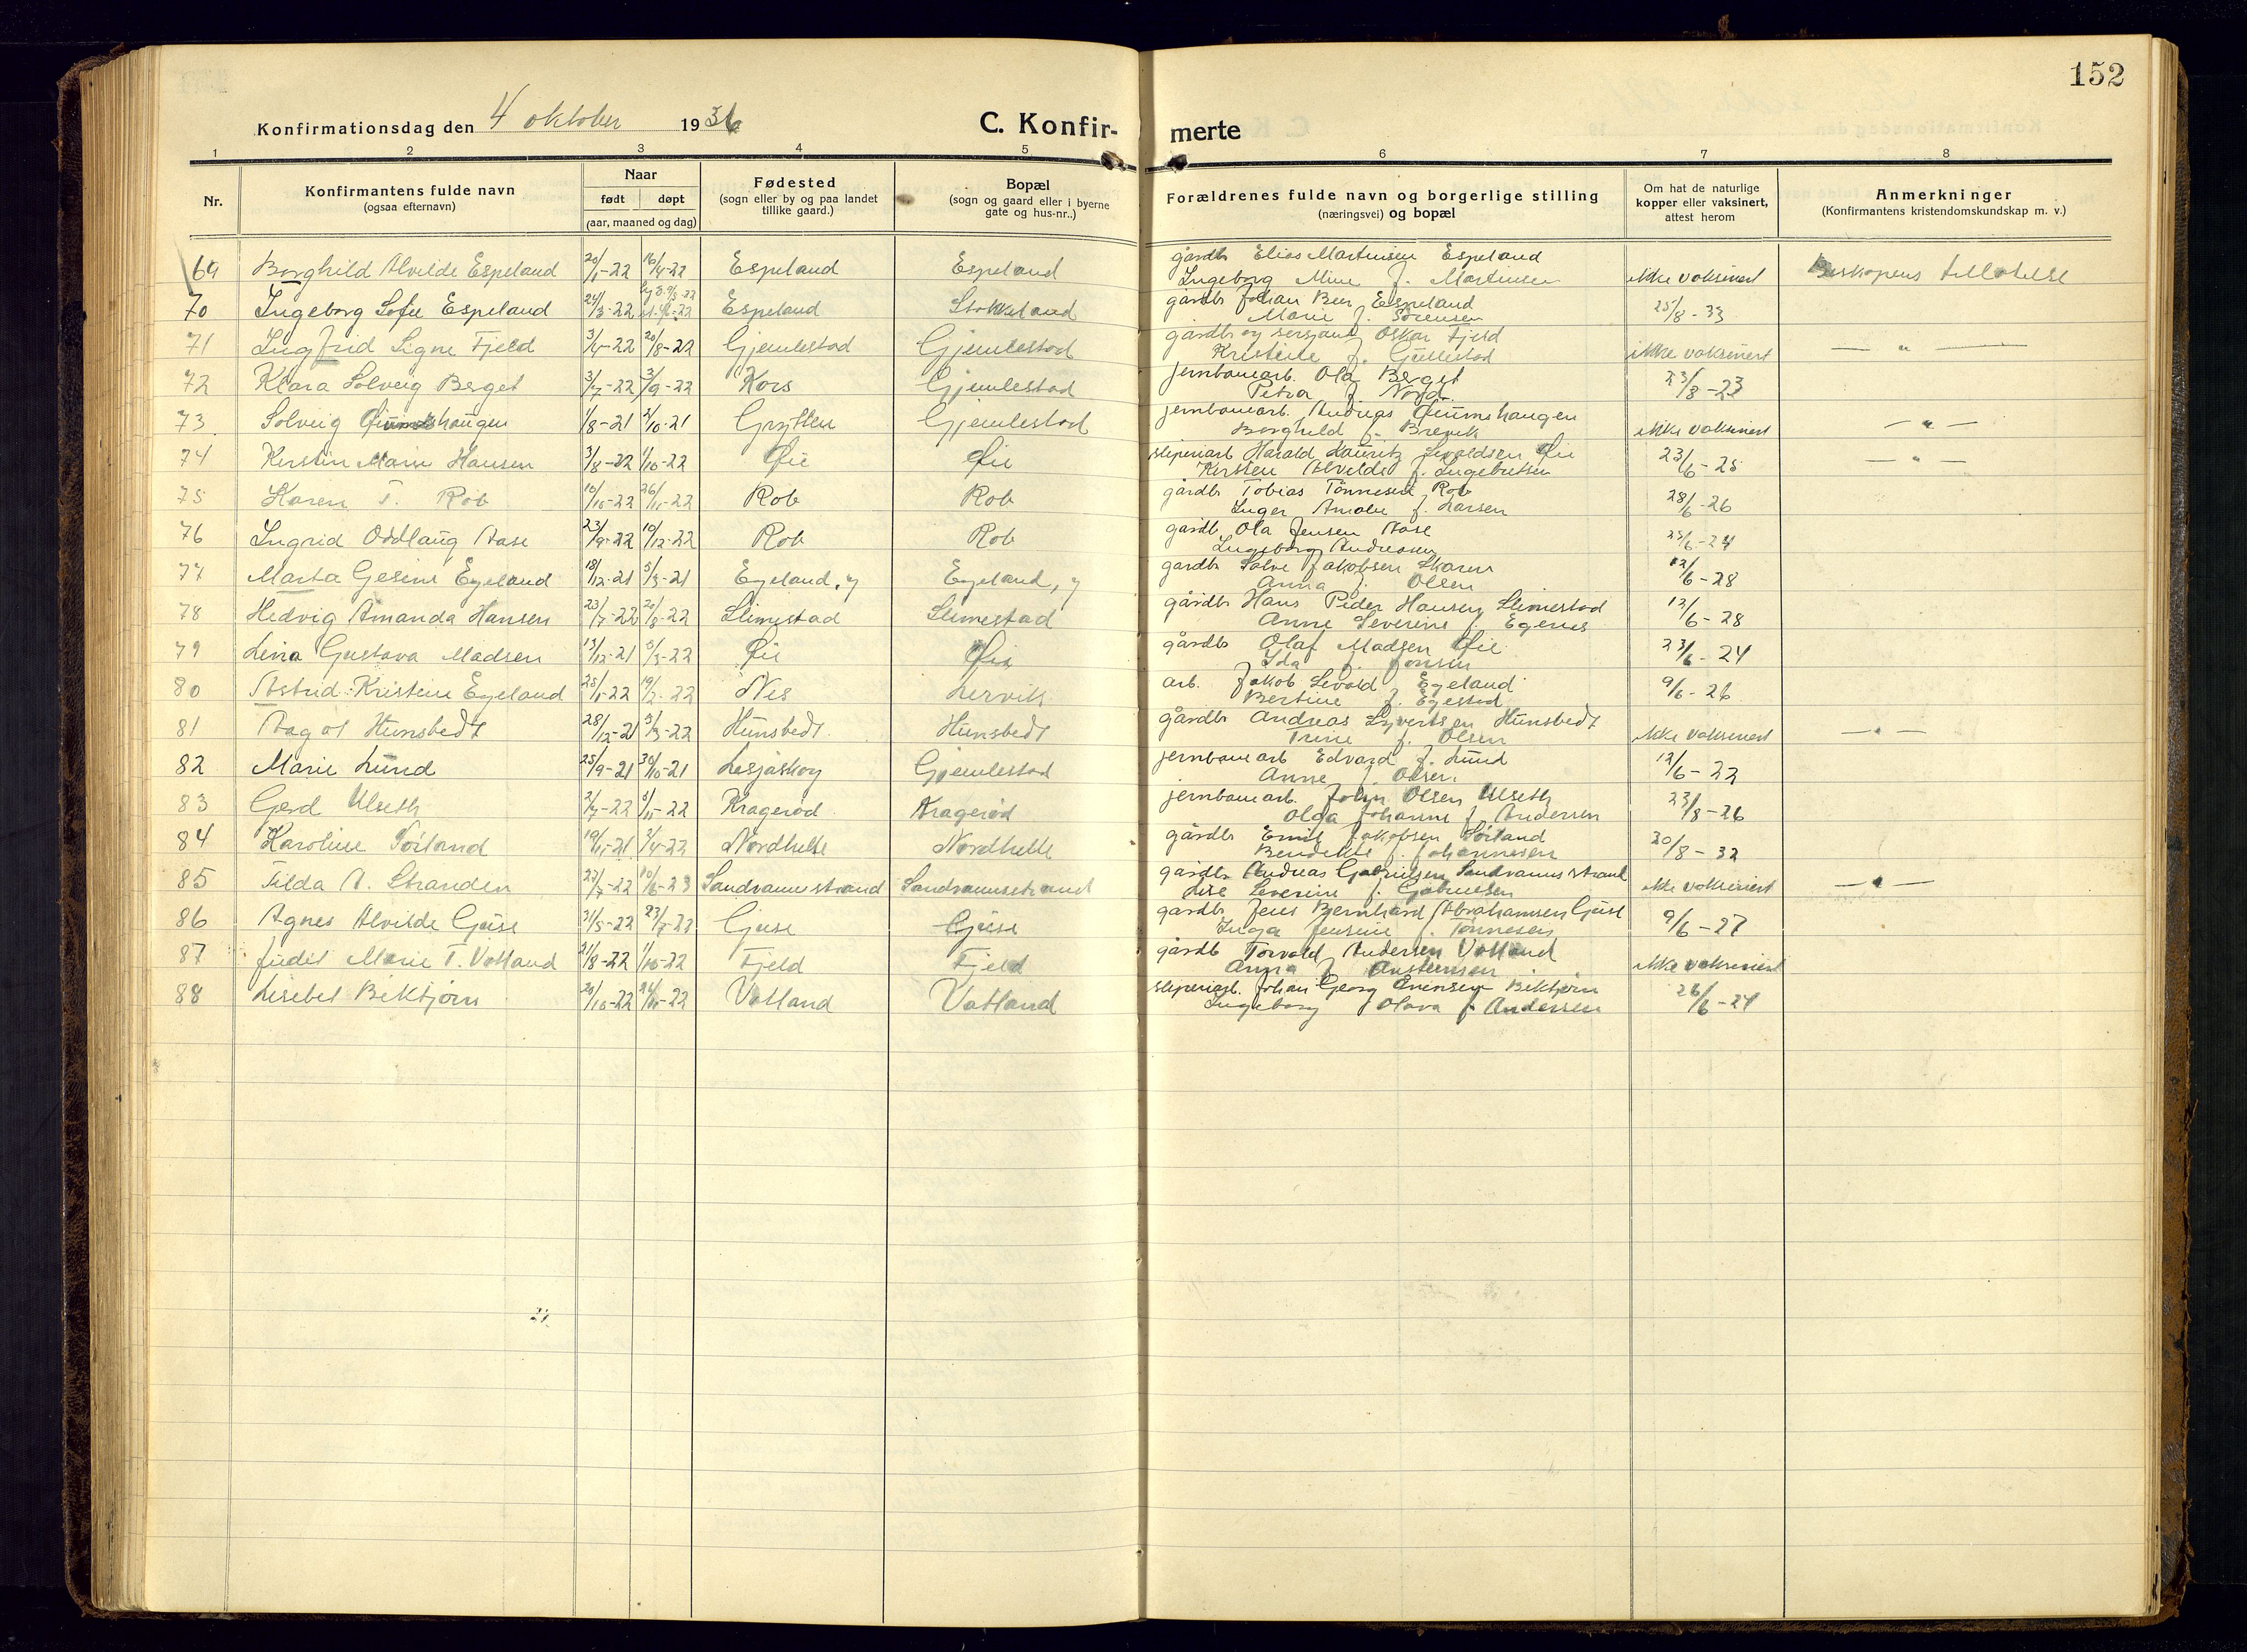 152
Konfirmationsdag den 4 oktober 1936
C. Konfir-merte
1 2 3 4 5 6 7 8
Nr.
Konfirmantens fulde navn (ogsaa efternavn)
Naar
født døpt
(aar, maaned og dag)
Fødested (sogn eller by og paa landet tillike gaard.)
Bopæl (sogn og gaard eller i byerne gate og hus-nr..)
Forældrenes fulde navn og borgerlige stilling (næringsvei) og bopæl
Om hat de naturlige kopper eller vaksinert, attest herom
Anmerkninger (Konfirmantens kristendomskundskap m. v.)
69 Borghild Alvilde Espeland 20/1-22 16/4-22 Espeland Espeland gårdbr Elias Martinsen Espeland
Ingeborg Mine f. Martinsen ikke vaksinert Biskopens tillatelse
70 Ingeborg Sofie Espeland 24/3-22 Espeland Stokkeland gårdbr Johan Beer Espeland
Marie f. Sørensen 25/8-33
71 Ingfrid Signe Fjeld 3/4-22 20/8-22 Gjemlestad Gjemlestad gårdbr og sersjant Oskar Fjeld
Kristine f. Gullestad ikke vaksinert — " —
72 Klara Solveig Berget 3/7-22 3/9-22 Kors Gjemlestad jernbanearb. Ola Berget
Petra f. Nord 23/8-23
73 Solveig 1/8-21 2/10-21 Grytten Gjemlestad jernbanearb. Andreas
Borghild f. Brevik ikke vaksinert — " —
74 Kirsten Marie Hansen 3/8-22 1/10-22 Øie Øie sliperiarb Harald Lauritz Sevaldsen Øie
Kirsten Alvilde f. Ingebretsen 23/6-25 — " —
75 Karen T. Rob 10/10-22 26/11-22 Rob Rob gårdbr Tobias Tønnesen Rob
Inger Amalie f. Larsen 28/6-26
76 Ingrid Oddlaug Aase 23/9-22 10/12-22 Rob Rob gårdb Ola Jensen Aase
Ingeborg Andreasen 23/6-24
77 Marta Gesine Egeland 18/12-21 5/3-21 Egeland, y Egeland, y gardbr Salve Jakobsen Skaren
Anna f. Olsen 12/6-28
78 Hedvig Amanda Hansen 23/7-22 20/8-22 Slimestad Slimestad gårdbr Hans Peder Hansen Slimestad
Anne Severine f. Egenes 12/6-28
79 Lina Gustava Madsen 13/12-21 5/3-22 Øie Øie gårdbr Olaf Madsen Øie
Ida f. Jonsen 23/6-24
80 Astrid Kristine Egeland 25/1-22 19/2-22 Nes Lervik arb. Jakob Sevald Egeland
Bertine f. Egestad 9/6-26
81 Aagot Hunsbedt 28/12-21 5/3-22 Hunsbedt Hunsbedt gårdbr Andreas Syvertsen Hunsbedt
Trine f. Olsen ikke vaksinert — " —
82 Marie Lund 25/9-21 30/10-21 Lesjaskog Gjemlestad jernbanearb Edvard J. Lund
Anne f. Olsen 12/6-22
83 Gerd Ulseth 2/7-22 5/11-22 Kragerød Kragerød jernbanearb. John Olsen Ulseth
Olga Johanne f. Andersen 23/8-26
84 Karoline Sørland 19/11-21 2/4-22 Nordhelle Nordhelle gårdbr Emil Jakobsen Sørland
Bendikte f. Johannesen 30/8-32
85 Tilda A. Stranden 22/7-22 Sandvannsstrand Sandvannsstrand gårdbr Andreas Gabrielsen Sandvannsstrand
Lise Severine f. Gabrielsen ikke vaksinert — " —
86 Agnes Alvilde Gjuse 31/5-22 23/7-22 Gjuse Gjuse gårdbr Jens Bernhard Abrahamsen Gjuse
Inga Jensine f. Tønnesen 9/6-27
87 Judit Marie T. Vatland 21/8-22 1/10-22 Fjeld Fjeld gårdb Torvald Andersen Vatland
Anna f. Austensen ikke vaksinert
88 Lisebet Bekbjørn 20/10-22 Vatland Vatland sliperiarb. Johan Georg Bekbjørn
Ingeborg Olava f. Andersen 26/6-24